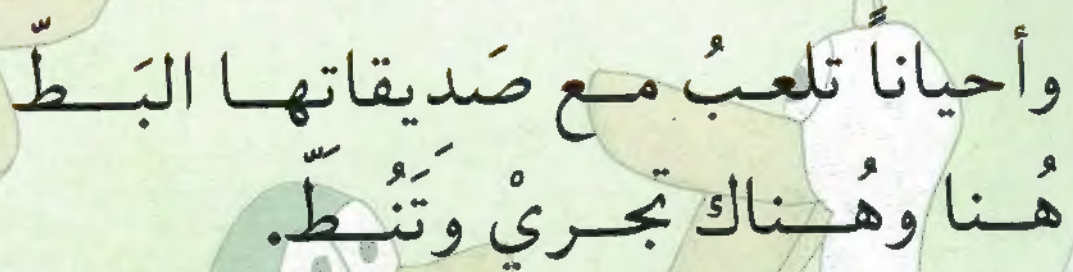 وأحياناً تلعبُ مع صَديقاتها البَطّ
هُنا وهُناك تجريْ وَتَنُطّ.